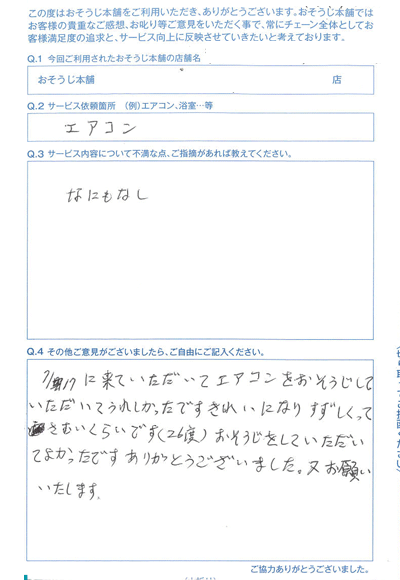 この度はおそうじ本舗をご利用いただき、ありがとうございます。おそうじ本舗では
お客様の貴重なご感想、お叱り等ご意見をいただく事で、常にチェーン全体としてお
客様満足度の追求と、サービス向上に反映させていきたいと考えております。
Q.1 今回ご利用されたおそうじ本舗の店舗名
おそうじ本舗 店
Q.2 サービス依頼箇所 （例）エアコン、浴室…等
エアコン
Q.3 サービス内容について不満な点、ご指摘があれば教えてください。
なにもなし
Q.4 その他ご意見がございましたら、ご自由にご記入ください。
7/17に来ていただいてエアコンをおそうじして
いただいてうれしかったですきれいになりすずしくって
さむいくらいです(26度)おそうじをしていただい
てよかったですありがとうございました。又お願い
いたします。
ご協力ありがとうございました。